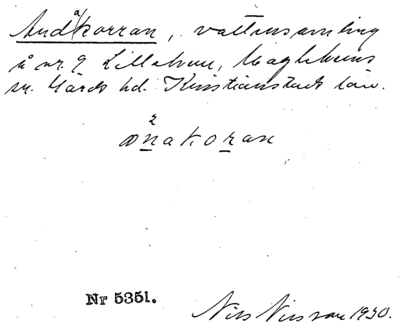 Andåkorran, vattensamling
å nr. 9 Lillehem, Maglehems
sn. Gärds hd. Kristianstads län.
ònakoran
Nr 5351.
Nils Nilsson 1930.